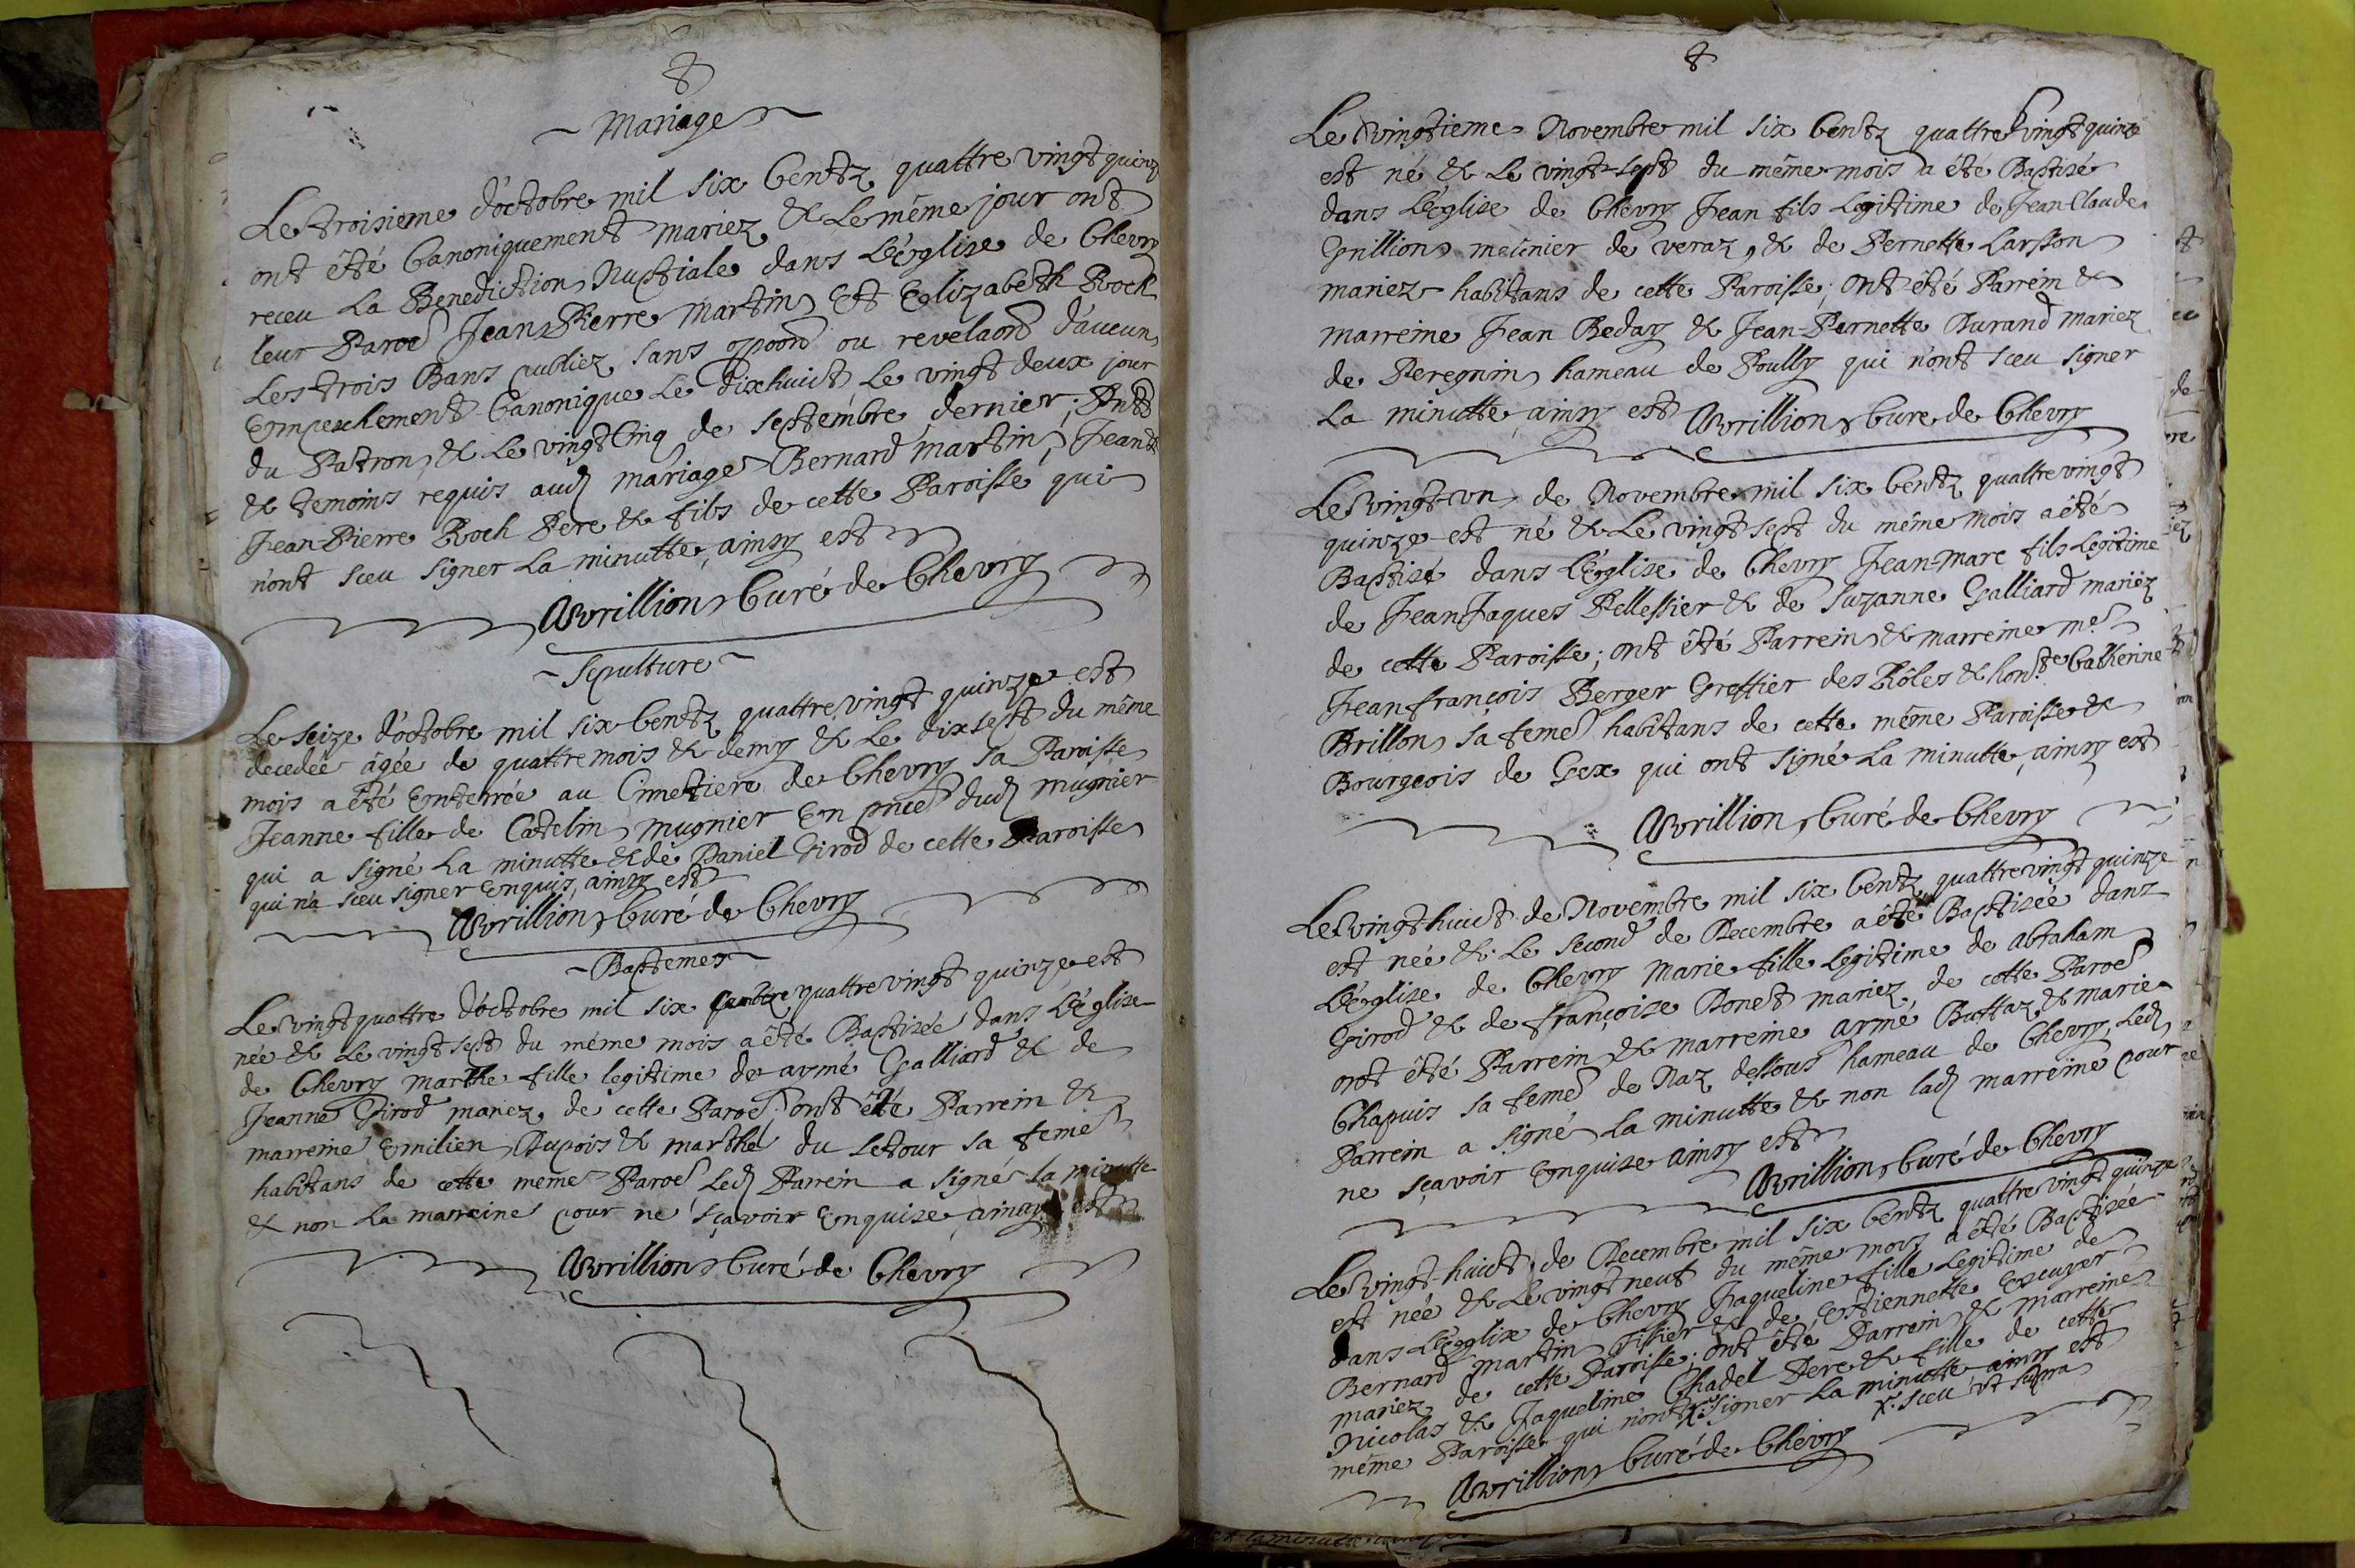 Mariage
Le troisieme d'octobre mil six Centz quattre vingt quinz
ont été Canoniquement Mariez & Le même jour ont
receu La Benediction Nuptiale dans L'église de Chevry
leur Paroê Jean Pierre Martin Et Elizabeth Roch
Les trois Bans publiez sans ou revelaon d'aucun
Empeschement Canonique Le dixhuict Le vingt deux jour
du Patron, & Le vingt Cinq de septembre dernier;
& temoins requis aud mariage Bernard Martin, Jean &
Jean-Pierre Roch Pere & fils de cette Paroisse qui
n'ont sceu signer La minutte, ainsy est
Avrillion, Curé de Chevry
Sepulture
Le seize d'octobre mil six Centz quattre vingt quinze est
decedée âgée de quattre mois & demy & Le dix sept du même
mois a été Enterrée au Cimetiere de Chevry sa Paroisse
Jeanne fille de Catelin Mugnier En pnce dud Mugnier
qui a signé La minutte & de Daniel Girod de cette Paroisse
qui n'a sceu signer Enquis, ainsy est
Avrillion, Curé de Chevry
Baptemes
Le vingt quattre d'octobre mil six Centz quattre vingt quinze est
née & Le vingt sept du même mois a été Baptizée dans L'église
de Chevry Marthe fille legitime de aymé Galliard & de
Jeanne Girod mariez, de cette Paroê; ont été Parrein &
marreine Emilien Dupois & marthe du Letour sa feme
habitans de cette meme Paroê Led Parrein a signé la minutte
& non La marreine pour ne sçavoir Enquise, ainsy est
Avrillion, Curé de Chevry
Le vingtieme Novembre mil six Centz quattre vingt quinze
est né & Le vingt-sept du même mois a été Baptizé
dans L'église de Chevry Jean fils Legitime de Jean Claude
Grillion meûnier de veraz, & de Pernette Larsson
mariez habitans de cette Paroisse; ont été Parrein &
marreine Jean Beday & Jean-Pernette Durand mariez
de Peregnin hameau de Poully qui n'ont sceu signer
La minutte, ainsy est Avrillion, Curé de Chevry
Le vingt-un de Novembre mil six Centz quattre vingt
quinze est né & Le vingt sept du même mois a été
Baptizé dans L'église de Chevry Jean-Marc fils Legitime
de Jean Jaques Pellessier & de Suzanne Galliard mariez
de cette Paroisse; ont été Parrein & marreine me
Jean françois Berger Greffier des Rôles & honte Catherine
Brillon sa feme habitans de cette même Paroisse &
Bourgeois de Gex qui ont signé La minutte, ainsy est
Avrillion, Curé de Chevry
Le vingt-huict de Novembre mil six Centz quattre vingt quinze
est née & Le second de Decembre a été Baptizée dans
L'église de Chevry Marie fille Legitime de abraham
Girod & de françoise Bonet mariez de cette Paroê
ont été Parrein & marreine aymé Buttaz & marie
Chapuis sa feme de Naz dessous hameau de Chevry, Led
Parrein a signé La minutte & non lad marreine pour
ne sçavoir Enquise ainsy est
Avrillion, Curé de Chevry
Le vingt-huict de Decembre mil six Centz quattre vingt quinze
est née & Le vingt neuf du même mois a été Baptizée
dans L'église de Chevry Jaqueline fille Legitime de
Bernard Martin Tissier & de Estiennette Escuyer
mariez de cette Paroisse; ont été Parrein & marreine
Nicolas & Jaqueline Chadel Pere & fille de cette
même Paroisse qui n'ont x signer La minutte ainsy est
x. sceu ut supra
Avrillion, Curé de Chevry